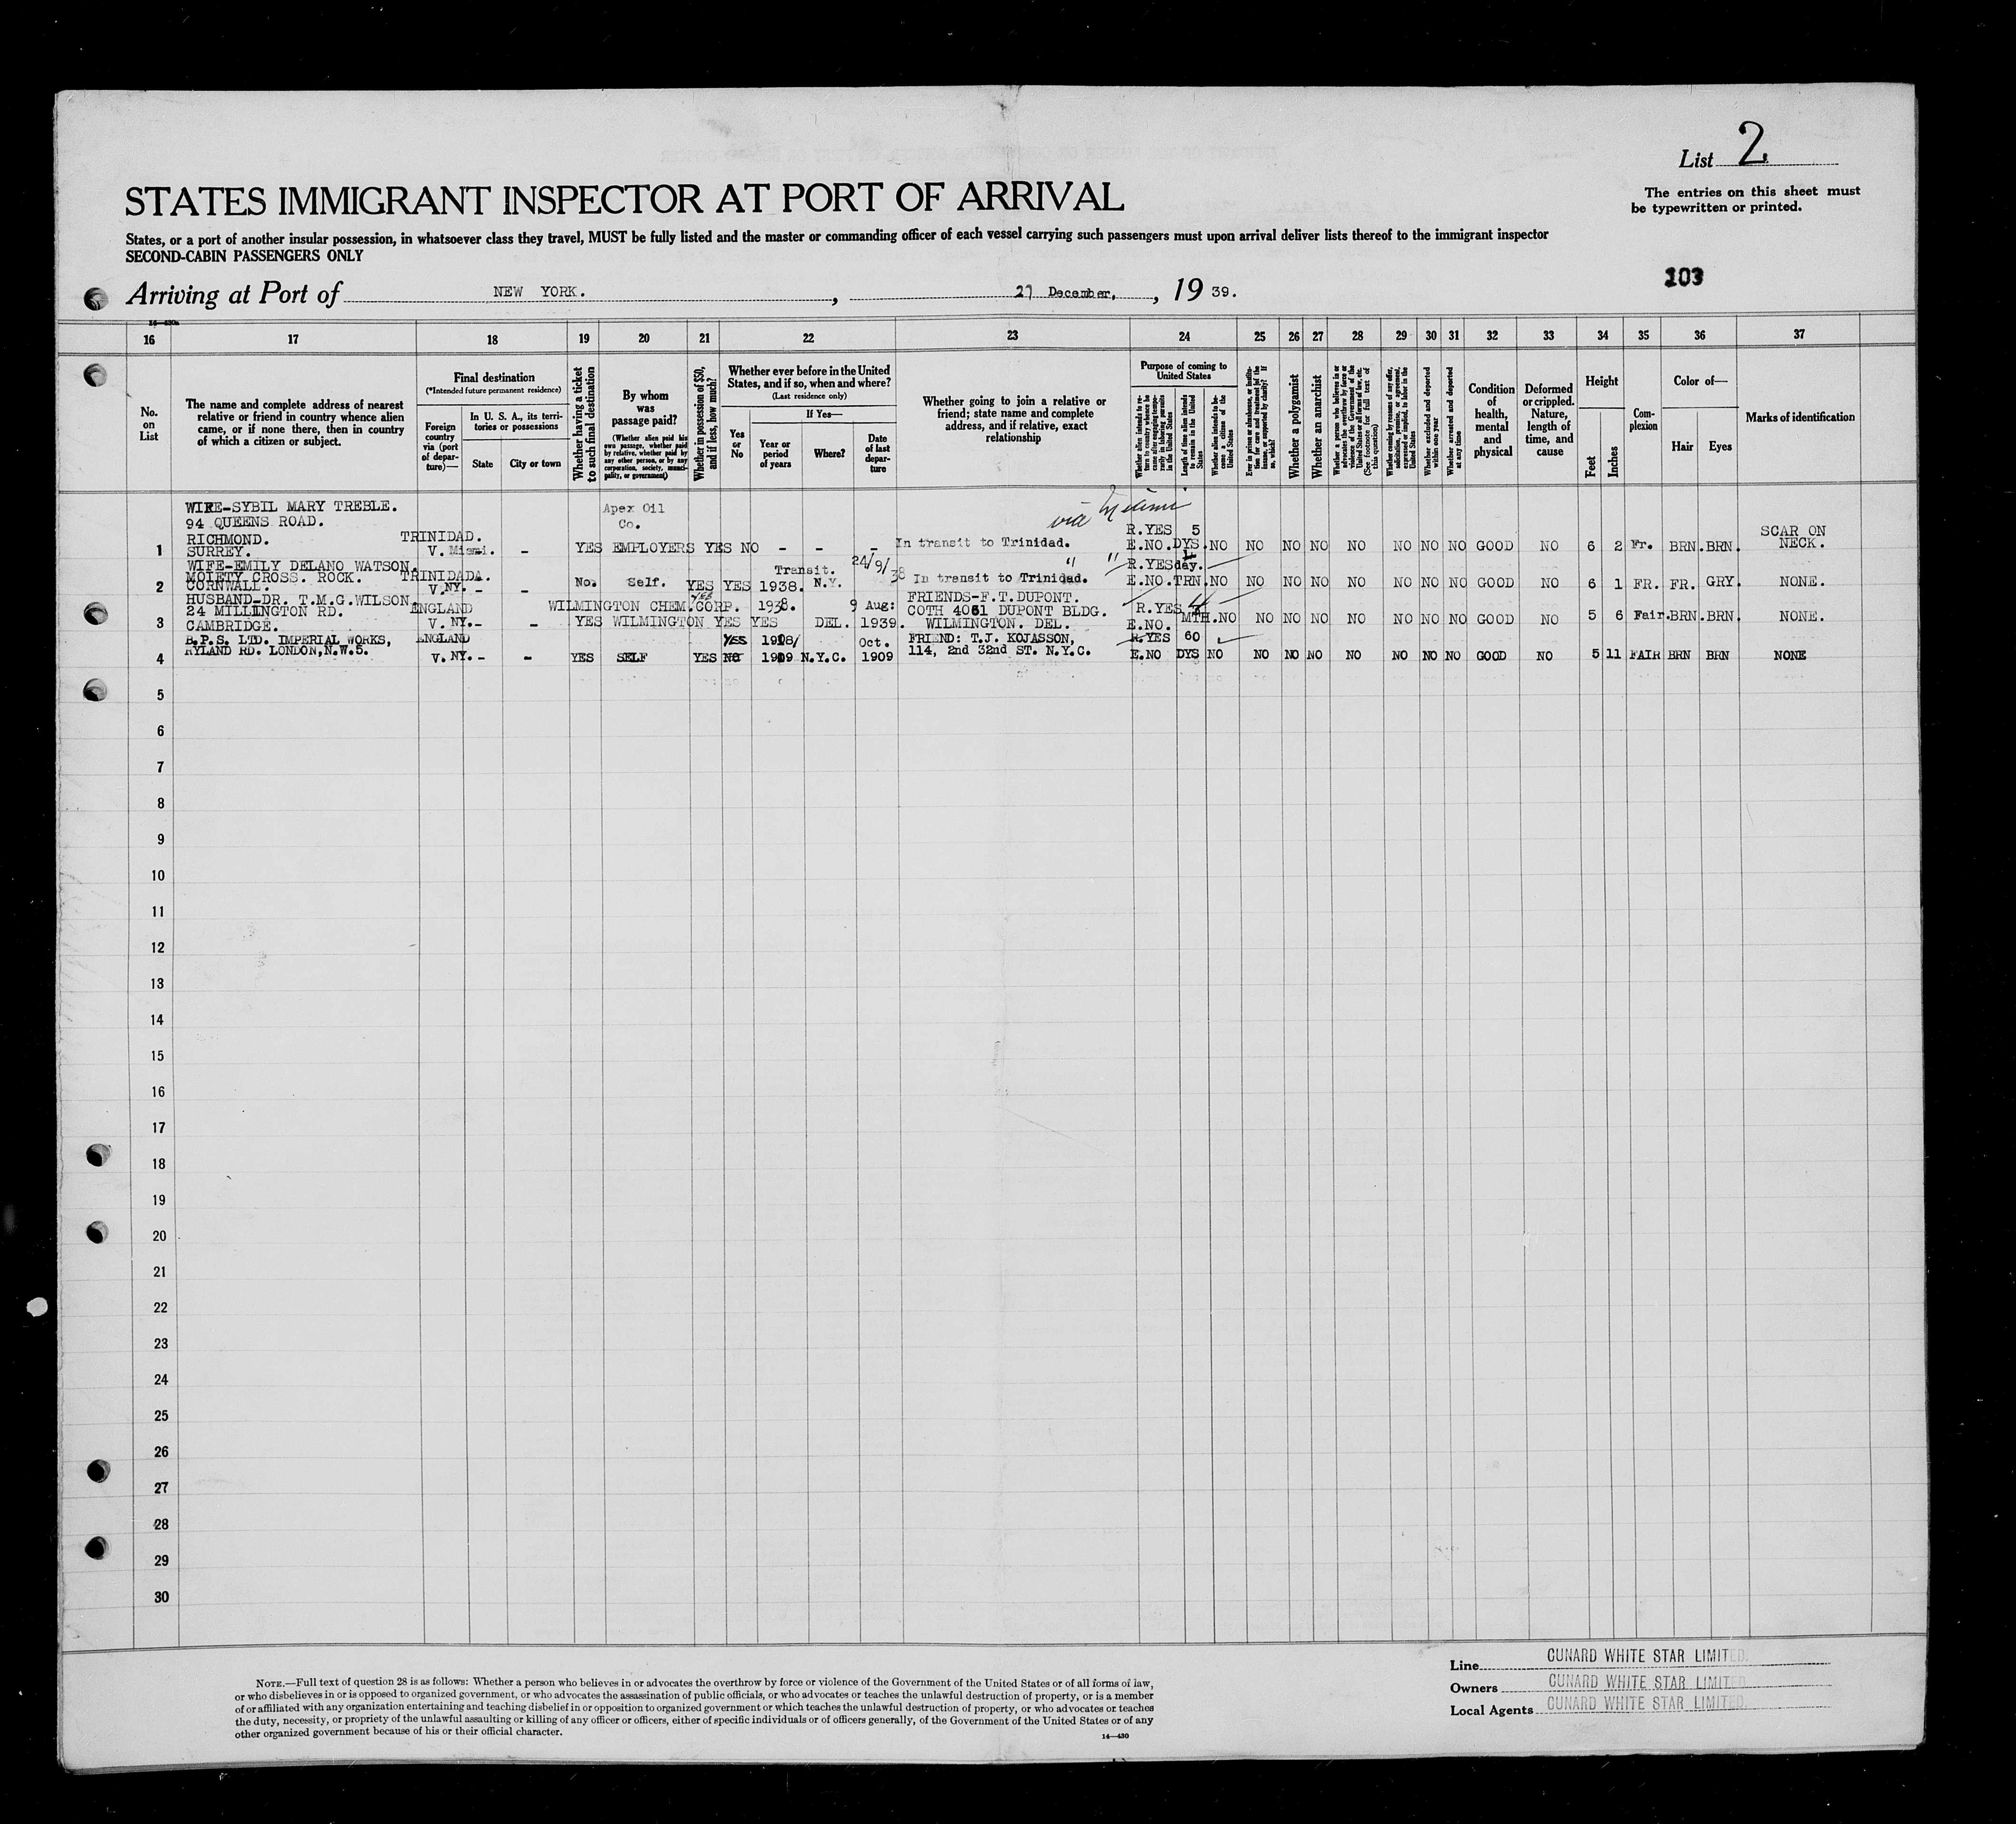 List 2
The entries on this sheet must
be typewritten or printed.
STATES IMMIGRANT INSPECTOR AT PORT OF ARRIVAL
States, or a port of another insular possession, in whatsoever class they travel, MUST be fully listed and the master or commanding officer of each vessel carrying such passengers must upon arrival deliver lists thereof to the immigrant inspector
SECOND-CABIN PASSENGERS ONLY
103
Arriving at Port of NEW YORK. , 27 December, , 19 39.
16 17 18 19 20 21 22 23 24 25 26 27 28 29 30 31 32 33 34 35 36 37
No. on List
The name and complete address of nearest
relative or friend in country whence alien
came, or if none there, then in country
of which a citizen or subject.
Final destination
(*Intended future permanent residence)
Foreign
country
via (port
of depar-
ture)—
In U. S. A., its terri-
tories or possessions
State
City or town
Whether having a ticket
to such final destination
By whom
was
passage paid?
(Whether alien paid his
own passage, whether paid
by relative, whether paid by
any other person, or by any
corporation, society, munici-
pality, or government)
Whether in possession of $50,
and if less, how much?
Whether ever before in the United
States, and if so, when and where?
(Last residence only)
Yes
or
No
If Yes—
Year or
period
of years
Where?
Date
of last
depar-
ture
Whether going to join a relative or
friend; state name and complete
address, and if relative, exact
relationship
Purpose of coming to
United States
Whether alien intends to re-
turn to country whence he
came after engaging tempo-
rarily in laboring pursuits
in the United States
Length of time alien intends
to remain in the United
States
Whether alien intends to be-
come a citizen of the
United States
Ever in prison or almshouse, or institu-
tion for care and treatment of the
insane, or supported by charity? If
so, which?
Whether a polygamist
Whether an anarchist
Whether a person who believes in or
advocates the overthrow by force or
violence of the Government of the
United States or all forms of law, etc.
(See footnote for full text of
this question)
Whether coming by reasons of any offer,
solicitation, promise, or agreement,
expressed or implied, to labor in the
United States
Whether excluded and deported
within one year
Whether arrested and deported
at any time
Condition
of
health,
mental
and
physical
Deformed
or crippled.
Nature,
length of
time, and
cause
Height
Feet
Inches
Com-
plexion
Color of—
Hair
Eyes
Marks of identification
WIFE-SYBIL MARY TREBLE.
94 QUEENS ROAD.
RICHMOND.
1 SURREY. TRINIDAD. V. Miami. - YES Apex Oil Co. EMPLOYERS YES NO - - - In transit to Trinidad. via Miami R.YES E.NO. 5 DYS. NO NO NO NO NO NO NO NO GOOD NO 6 2 Fr. BRN. BRN. SCAR ON NECK.
WIFE-EMILY DELANO WATSON.
MOIETY CROSS. ROCK.
2 CORNWALL. TRINIDADA. V.NY. - - No. Self. YES YES Transit. 1938. N.Y. 24/9/38 In transit to Trinidad. " " R.YES E.NO. day. TRN. NO NO NO NO NO NO NO NO GOOD NO 6 1 FR. FR. GRY. NONE.
HUSBAND-DR. T.M.G.WILSON
24 MILLINGTON RD.
3 CAMBRIDGE. ENGLAND V. NY.- - YES WILMINGTON CHEM.CORP. WILMINGTON YES YES YES 1938. DEL. 9 Aug: 1939. FRIENDS-F.T.DUPONT. COTH 4061 DUPONT BLDG. WILMINGTON. DEL. R.YES E.NO. 4 MTH. NO NO NO NO NO NO NO NO GOOD NO 5 6 Fair. BRN. BRN. NONE.
B.P.S. LTD. IMPERIAL WORKS,
4 RYLAND RD. LONDON,N.W.5. ENGLAND V. NY.- - YES SELF YES YES NO 1908/ 1909 N.Y.C. Oct. 1909 FRIEND: T.J. KOJASSON, 114, 2nd 32nd ST. N.Y.C. R.YES E.NO 60 DYS NO NO NO NO NO NO NO NO GOOD NO 5 11 FAIR BRN BRN NONE
5
6
7
8
9
10
11
12
13
14
15
16
17
18
19
20
21
22
23
24
25
26
27
28
29
30
NOTE.—Full text of question 28 is as follows: Whether a person who believes in or advocates the overthrow by force or violence of the Government of the United States or of all forms of law,
or who disbelieves in or is opposed to organized government, or who advocates the assassination of public officials, or who advocates or teaches the unlawful destruction of property, or is a member
of or affiliated with any organization entertaining and teaching disbelief in or opposition to organized government or which teaches the unlawful destruction of property, or who advocates or teaches
the duty, necessity, or propriety of the unlawful assaulting or killing of any officer or officers, either of specific individuals or of officers generally, of the Government of the United States or of any
other organized government because of his or their official character.
14—430
Line CUNARD WHITE STAR LIMITED.
Owners CUNARD WHITE STAR LIMITED
Local Agents CUNARD WHITE STAR LIMITED.